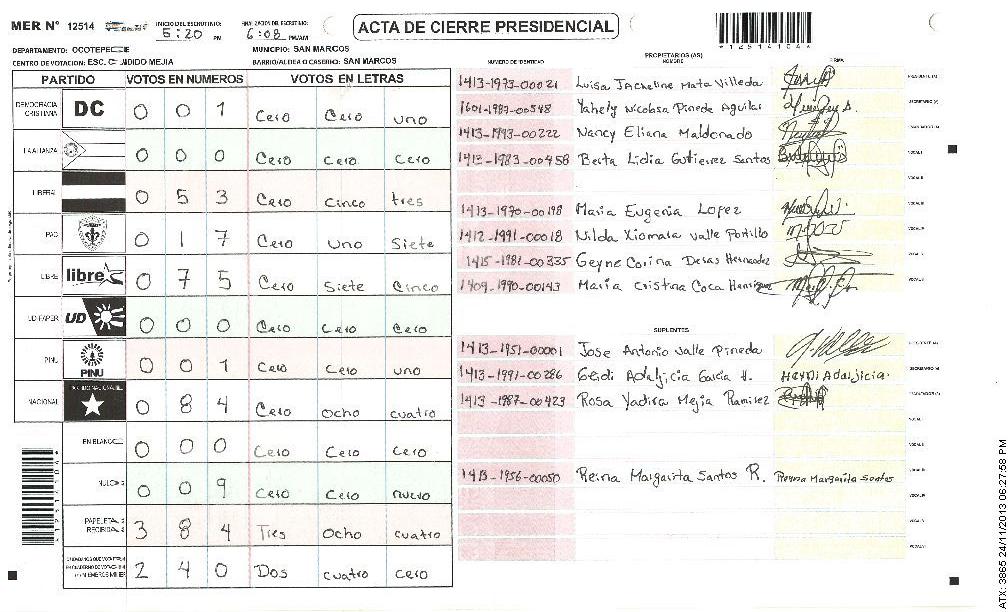 MER Nº 12514
INICIO DEL ESCRUTINIO: 5:20 PM
FINALIZACION DEL ESCRUTINIO: 6:08 PM/AM
ACTA DE CIERRE PRESIDENCIAL
*125141044*
DEPARTAMENTO: OCOTEPE
MUNICIPIO: SAN MARCOS
CENTRO DE VOTACION: ESC. NDIDO MEJIA
BARRIO/ALDEA O CASERIO: SAN MARCOS
PARTIDO VOTOS EN NUMEROS VOTOS EN LETRAS
DEMOCRACIA CRISTIANA DC 0 0 1 Cero Cero uno
LA ALIANZA 0 0 0 Cero Cero Cero
LIBERAL 0 5 3 Cero Cinco tres
PAC 0 1 7 Cero uno Siete
LIBRE libre 0 7 5 Cero Siete Cinco
UD-FAPER UD 0 0 0 Cero Cero Cero
PINU PINU 0 0 1 Cero Cero uno
NACIONAL 0 8 4 Cero Ocho cuatro
EN BLANCO 0 0 0 Cero Cero Cero
NULOS 0 0 9 Cero Cero nueve
PAPELETAS RECIBIDAS 3 8 4 Tres Ocho cuatro
2 4 0 Dos cuatro cero
NUMERO DE IDENTIDAD
PROPIETARIOS (AS)
NOMBRE
FIRMA
1413-1973-00021 Luisa Jacneline Mata Villeda
1601-1987-00548 Yahely Nicolsa Pineda Aguilar
1413-1993-00222 Nancy Eliana Maldonado
1413-1983-00458 Berta Lidia Gutierrez Santos
1413-1970-00198 Maria Eugenia Lopez
1412-1991-00018 Nilda Xiomara Valle Portillo
1415-1981-00335 Geyne Corina Desas Hernandez
1409-1990-00143 Maria Cristina Coca
SUPLENTES
1413-1951-00001 Jose Antonio Valle Pineda
1413-1991-00286 Geidi Adaljicia Garcia H. HeyDi Adaljicia
1413-1987-00423 Rosa Yadira Mejia Ramirez
1413-1956-00050 Reina Margarita Santos R. Reyna Margarita Santos
ATX: 3865 24/11/2013 06:27:58 PM